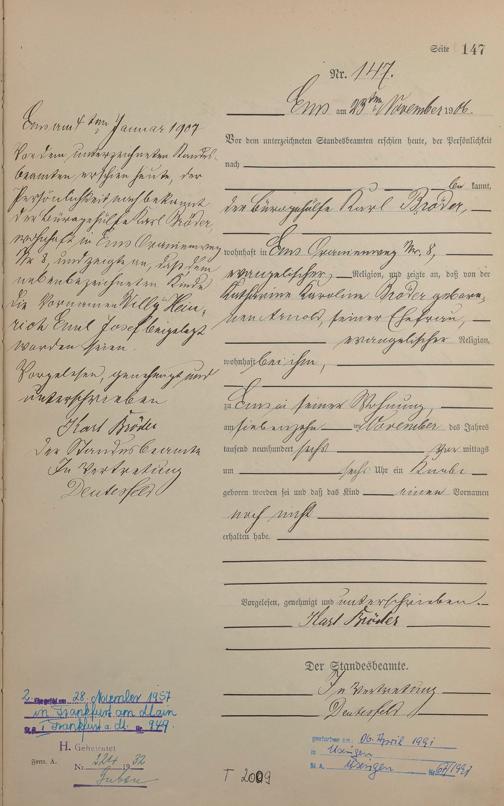 Seite 147
Nr. 147.
Ems am 23ten November 1906.
Vor dem unterzeichneten Standesbeamten erschien heute, der Persönlichkeit
nach
be kannt,
der Bürogehülfe Karl Bröder,
wohnhaft in Ems Oranienweg Nr. 8,
evangelischer Religion, und zeigte an, daß von der
Katharine Karoline Bröder gebore-
nen Arnold, seiner Ehefrau,
evangelischer Religion,
wohnhaft bei ihm,
zu Ems in seiner Wohnung,
am siebenzehn ten November des Jahres
tausend neunhundert sechs Vor mittags
um sechs Uhr ein Knabe
geboren worden sei und daß das Kind einen Vornamen
noch nicht
erhalten habe.
Vorgelesen, genehmigt und unterschrieben.
Karl Bröder
Der Standesbeamte.
In Vertretung
Ems am 4ten Januar 1907
Vor dem unterzeichneten Standes-
beamten erschien heute, der
Persönlichkeit nach bekannt
der Bürogehülfe Karl Bröder,
wohnhaft in Ems Oranienweg
Nr 8, und zeigte an, daß dem
nebenbezeichneten Kinde
die Vornamen Willy Hein-
rich Emil Josef beigelegt
worden seien.
Vorgelesen, genehmigt und
unterschrieben
Karl Bröder
der Standesbeamte
In Vertretung
2. Eheschl. am 28. November 1957
in Frankfurt am Main
St.A. I Frankfurt a. M. Nr.
H. Geheiratet
Nr. 224 1932
T 2009
gestorben am 06. April 1991
in Usingen
St. A. Usingen Nr. 67/1991